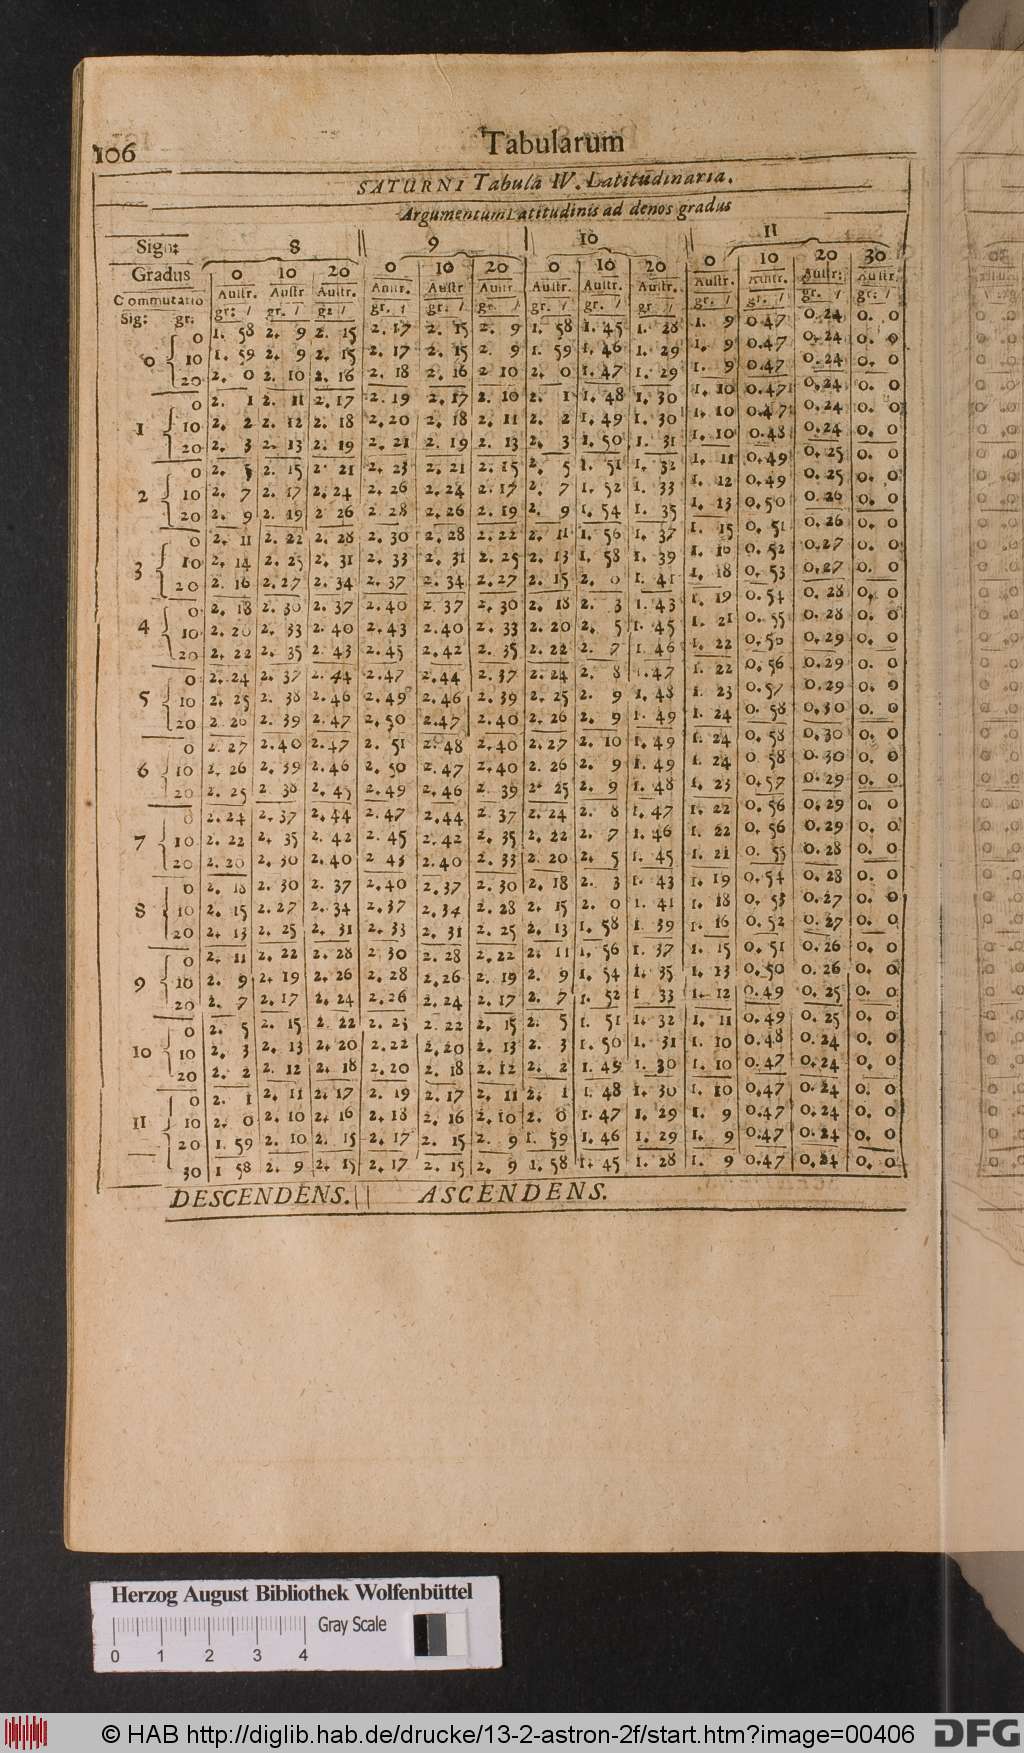 106
Tabularum
SATURNI Tabula IV. Latitudinaria.
Argumentum Latitudinis ad denos gradus
Sign: 8 9 10 11
Gradus 0 10 20 0 10 20 0 10 20 0 10 20 30
Commutatio Austr. Austr Austr. Austr. Austr Austr. Austr. Austr. Austr. Austr. Austr. Austr: Austr.
Sig: gr: gr: / gr. / gr / gr. / gr. / gr. / gr. / gr. / gr / gr. / gr. / gr. / gr: /
0 0 1. 58 2. 9 2. 15 2. 17 2. 15 2. 9 1. 58 1. 45 1. 28 1. 9 0.47 0.24 0. 0
10 1. 59 2. 9 2. 15 2. 17 2. 15 2. 9 1. 59 1. 46 1. 29 1. 9 0.47 0.24 0. 0
20 2. 0 2. 10 2. 16 2. 18 2. 16 2 10 2. 0 1. 47 1. 29 1. 9 0.47 0.24 0. 0
1 0 2. 1 2. 11 2. 17 2. 19 2. 17 2. 10 2. 1 1. 48 1. 30 1. 10 0.47 0.24 0. 0
10 2. 2 2. 12 2. 18 2. 20 2. 18 2. 11 2. 2 1. 49 1. 30 1. 10 0.47 0.24 0. 0
20 2. 3 2. 13 2. 19 2. 21 2. 19 2. 13 2. 3 1. 50 1. 31 1. 10 0.48 0.24 0. 0
2 0 2. 5 2. 15 2. 21 2. 23 2. 21 2. 15 2. 5 1. 51 1. 32 1. 11 0.49 0. 25 0. 0
10 2. 7 2. 17 2. 24 2. 26 2. 24 2. 17 2. 7 1. 52 1. 33 1. 12 0.49 0. 25 0. 0
20 2. 9 2. 19 2 26 2. 28 2. 26 2. 19 2. 9 1. 54 1. 35 1. 13 0.50 0. 26 0. 0
3 0 2. 11 2. 22 2. 28 2. 30 2. 28 2. 22 2. 11 1. 56 1. 37 1. 15 0. 51 0.26 0. 0
10 2. 14 2. 25 2. 31 2. 33 2. 31 2. 25 2. 13 1. 58 1. 39 1. 16 0. 52 0.27 0. 0
20 2. 16 2. 27 2. 34 2. 37 2. 34 2. 27 2. 15 2. 0 1. 41 1. 18 0. 53 0.27 0. 0
4 0 2. 18 2. 30 2. 37 2.40 2. 37 2. 30 2. 18 2. 3 1. 43 1. 19 0. 54 0. 28 0. 0
10 2. 20 2. 33 2. 40 2. 43 2.40 2. 33 2. 20 2. 5 1. 45 1. 21 0. 55 0. 28 0. 0
20 2. 22 2. 35 2. 43 2. 45 2. 42 2. 35 2. 22 2. 7 1. 46 1. 22 0.50 0.29 0. 0
5 0 2. 24 2. 37 2. 44 2.47 2.44 2. 37 2. 24 2. 8 1.47 1. 22 0. 56 0.29 0. 0
10 2. 25 2. 38 2. 46 2. 49 2. 46 2. 39 2. 25 2. 9 1. 48 1. 23 0.57 0.29 0. 0
20 2 26 2. 39 2. 47 2. 50 2.47 2.40 2. 26 2. 9 1. 49 1. 24 0. 58 0.30 0. 0
6 0 2. 27 2.40 2.47 2. 51 2. 48 2.40 2. 27 2. 10 1. 49 1. 24 0. 58 0. 30 0. 0
10 2. 26 2. 39 2.46 2. 50 2. 47 2.40 2. 26 2. 9 1. 49 1. 24 0 58 0. 30 0. 0
20 2. 25 2 38 2. 45 2.49 2. 46 2. 39 2. 25 2. 9 1. 48 1. 23 0.57 0. 29 0. 0
7 0 2. 24 2. 37 2. 44 2. 47 2.44 2. 37 2. 24 2. 8 1. 47 1. 22 0. 56 0. 29 0. 0
10 2. 22 2. 35 2. 42 2. 45 2.42 2. 35 2. 22 2. 7 1. 46 1. 22 0. 56 0.29 0. 0
20 2. 20 2. 30 2.40 2 43 2. 40 2. 33 2. 20 2. 5 1. 45 1. 21 0. 55 0. 28 0. 0
8 0 2. 18 2. 30 2. 37 2.40 2.37 2. 30 2. 18 2. 3 1. 43 1. 19 0. 54 0. 28 0. 0
10 2. 15 2. 27 2. 34 2. 37 2. 34 2. 28 2. 15 2. 0 1. 41 1. 18 0. 53 0.27 0. 0
20 2. 13 2. 25 2. 31 2. 33 2. 31 2. 25 2. 13 1. 58 1. 39 1. 16 0. 52 0. 27 0. 0
9 0 2. 11 2. 22 2. 28 2 30 2. 28 2. 22 2. 11 1. 56 1. 37 1. 15 0. 51 0. 26 0. 0
10 2. 9 2. 19 2. 26 2. 28 2.26 2. 19 2. 9 1. 54 1. 35 1. 13 0. 50 0. 26 0. 0
20 2. 7 2. 17 2. 24 2.26 2. 24 2. 17 2. 7 1. 52 1 33 1. 12 0.49 0. 25 0. 0
10 0 2. 5 2. 15 2. 22 2. 23 2. 22 2. 15 2. 5 1. 51 1. 32 1. 11 0.49 0. 25 0. 0
10 2. 3 2. 13 2. 20 2.22 2. 20 2. 13 2. 3 1. 50 1. 31 1. 10 0.48 0. 24 0. 0
20 2. 2 2. 12 2. 18 2. 20 2. 18 2. 12 2. 2 1. 49 1. 30 1. 10 0.47 0.24 0. 0
11 0 2. 1 2. 11 2. 17 2. 19 2. 17 2. 11 2. 1 1. 48 1. 30 1. 10 0.47 0. 24 0. 0
10 2. 0 2. 10 2. 16 2. 18 2. 16 2. 10 2. 0 1. 47 1. 29 1. 9 0.47 0.24 0. 0
20 1. 59 2. 10 2. 15 2. 17 2. 15 2. 9 1. 59 1. 46 1. 29 1. 9 0.47 0.24 0. 0
30 1 58 2. 9 2. 15 2. 17 2. 15 2. 9 1. 58 1. 45 1. 28 1. 9 0.47 0.24 0. 0
DESCENDENS. ASCENDENS.
Herzog August Bibliothek Wolfenbüttel
Gray Scale
0 1 2 3 4
© HAB http://diglib.hab.de/drucke/13-2-astron-2f/start.htm?image=00406 DFG